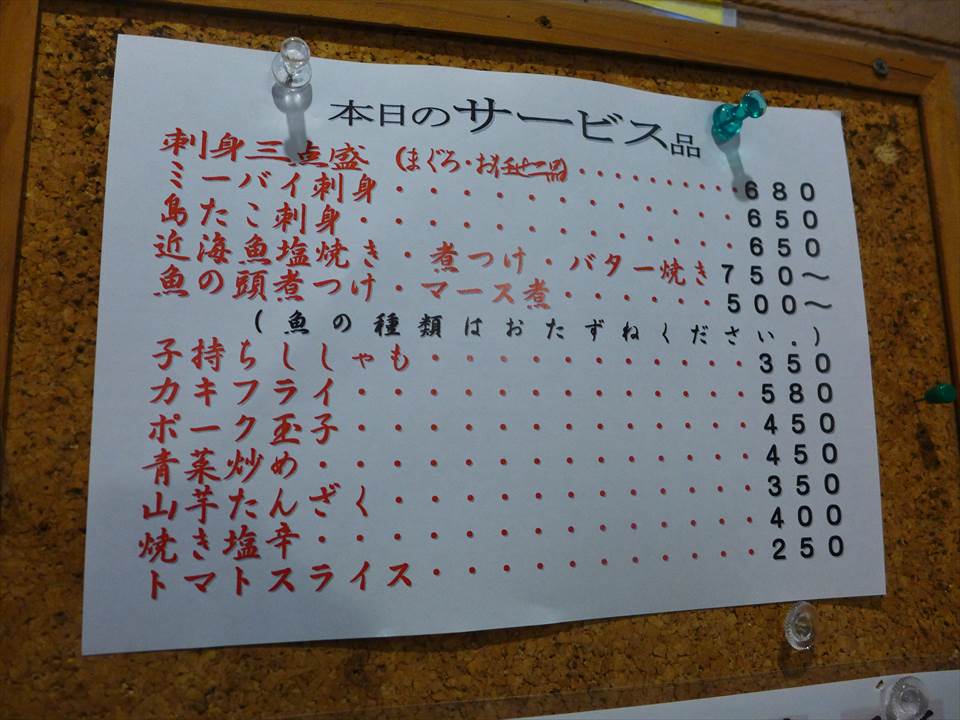 本日のサービス品
刺身三点盛 (まぐろ・お任せ)・・・・・・・・・680
ミーバイ刺身・・・・・・・・・・・・・650
島たこ刺身・・・・・・・・・・・・・650
近海魚塩焼き・煮つけ・バター焼き750～
魚の頭煮つけ・マース煮・・・・・500～
(魚の種類はおたずねください.)
子持ちししゃも・・・・・・・・・・・350
カキフライ・・・・・・・・・・・・580
ポーク玉子・・・・・・・・・・・・450
青菜炒め・・・・・・・・・・・・・450
山芋たんざく・・・・・・・・・・・350
焼き塩辛・・・・・・・・・・・・・400
トマトスライス・・・・・・・・・・250